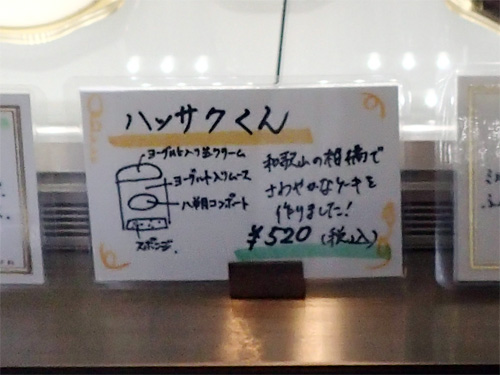 ハッサクくん
ヨーグルト入り生クリーム
ヨーグルト入りムース
八朔コンポート
スポンジ
和歌山の柑橘で
さわやかなケーキを
作りました!
¥520(税込)